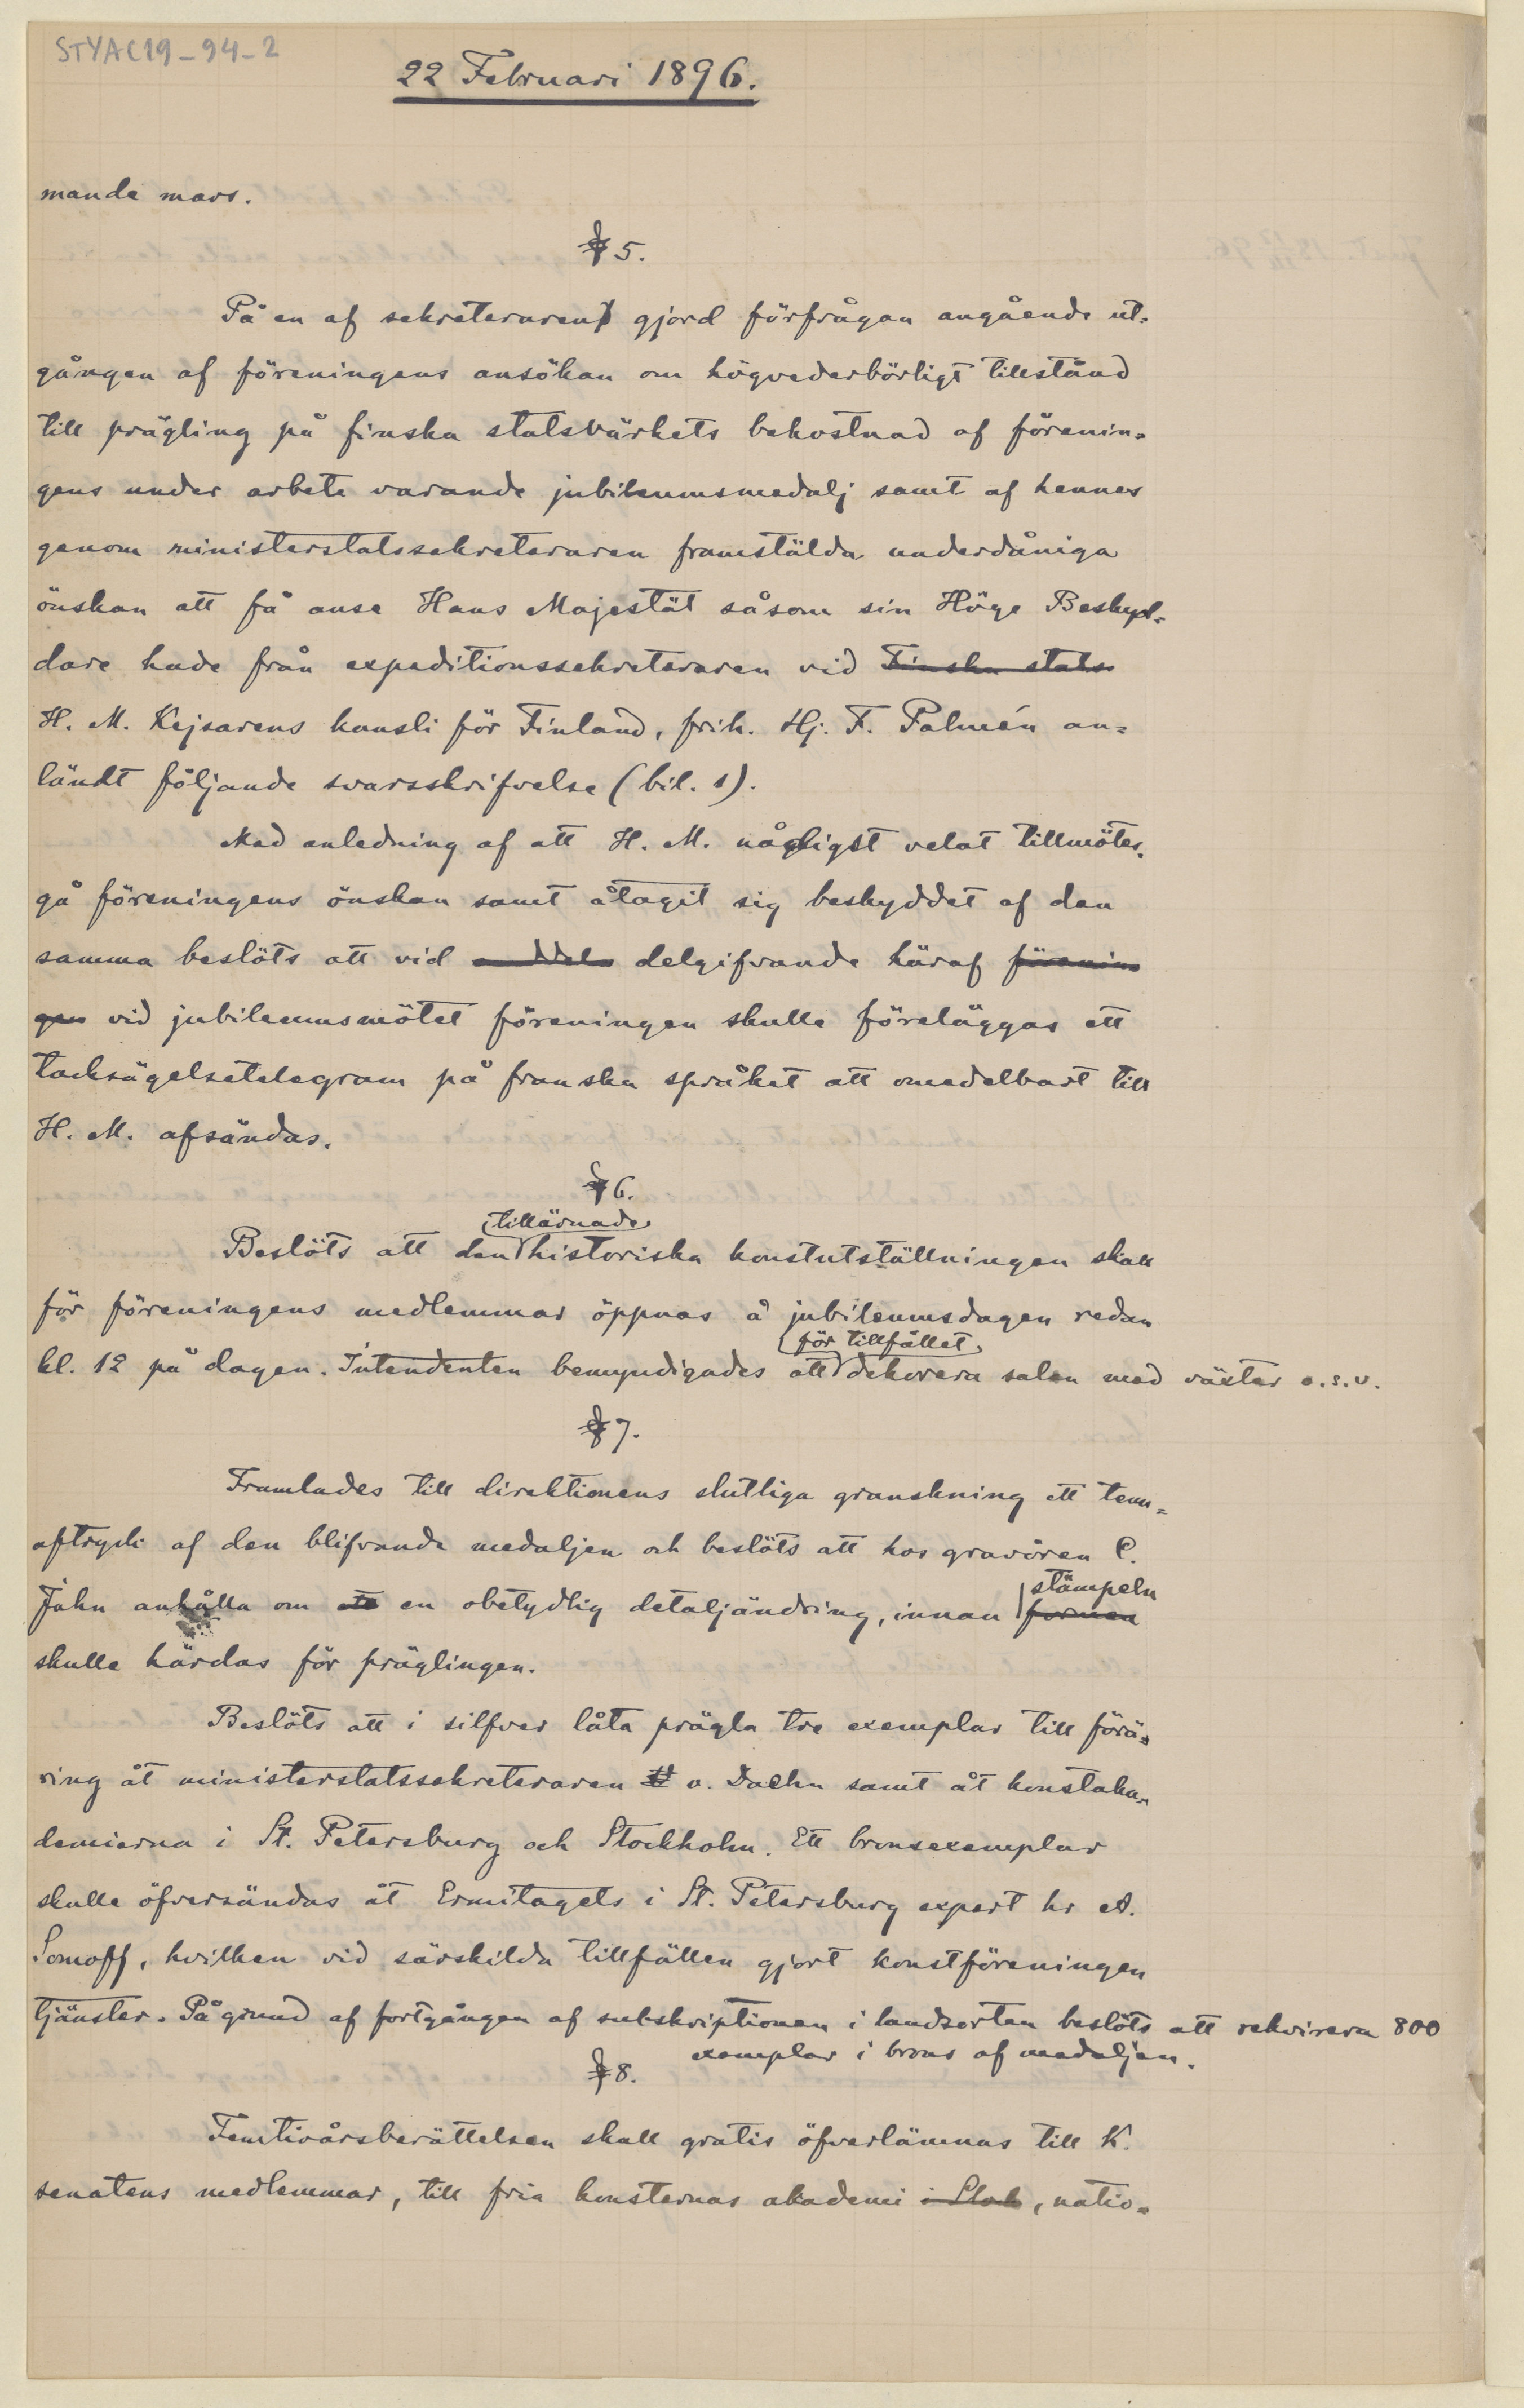 STYAC19-94-2
22 Februari 1896.
mande mars.
§ 5.
På en af sekreteraren gjord förfrågan angående ut-
gången af föreningens ansökan om högvederbörligt tillstånd
till prägling på finska statsvärkets bekostnad af förenin-
gens under arbete varande jubileumsmedalj samt af hennes
genom ministerstatssekreteraren framstälda underdåniga
önskan att få anse Hans Majestät såsom sin Höge Beskyd-
dare hade från expeditionssekreteraren vid Finska stats
H. M. Kejsarens kansli för Finland, frih. Hj. F. Palmén an-
ländt följande svarsskrifvelse (bil. 1).
Med anledning af att H. M. nådigst velat tillmötes-
gå föreningens önskan samt åtagit sig beskyddet af den
samma beslöts att vid meddela delgifvande häraf förenin
gen vid jubileumsmötet föreningen skulle föreläggas ett
tacksägelsetelegram på franska språket att omedelbart till
H. M. afsändas.
§ 6.
tillärnade
Beslöts att den historiska konstutställningen skall
för föreningens medlemmar öppnas å jubileumsdagen redan
för tillfället
kl. 12 på dagen. Intendenten bemyndigades att dekorera salen med växter o.s.v.
§ 7.
Framlades till direktionens slutliga granskning ett tenn-
aftryck af den blifvande medaljen och beslöts att hos gravören C.
stämpeln
Jahn anhålla om ett en obetydlig detaljändring, innan formen
skulle härdas för präglingen.
Beslöts att i silfver låta prägla tre exemplar till förä-
ring åt ministerstatssekreteraren v. Daehn samt åt konstaka-
demierna i St. Petersburg och Stockholm. Ett bronsexemplar
skulle öfversändas åt Ermitagets i St. Petersburg expert hr A.
Somoff, hvilken vid särskilda tillfällen gjort konstföreningen
tjänster. På grund af fortgången af subskriptionen i landsorten beslöts att rekvirera 800
exemplar i brons af medaljen.
§ 8.
Femtioårsberättelsen skall gratis öfverlämnas till K.
senatens medlemmar, till fria konsternas akademi i Stock, natio-